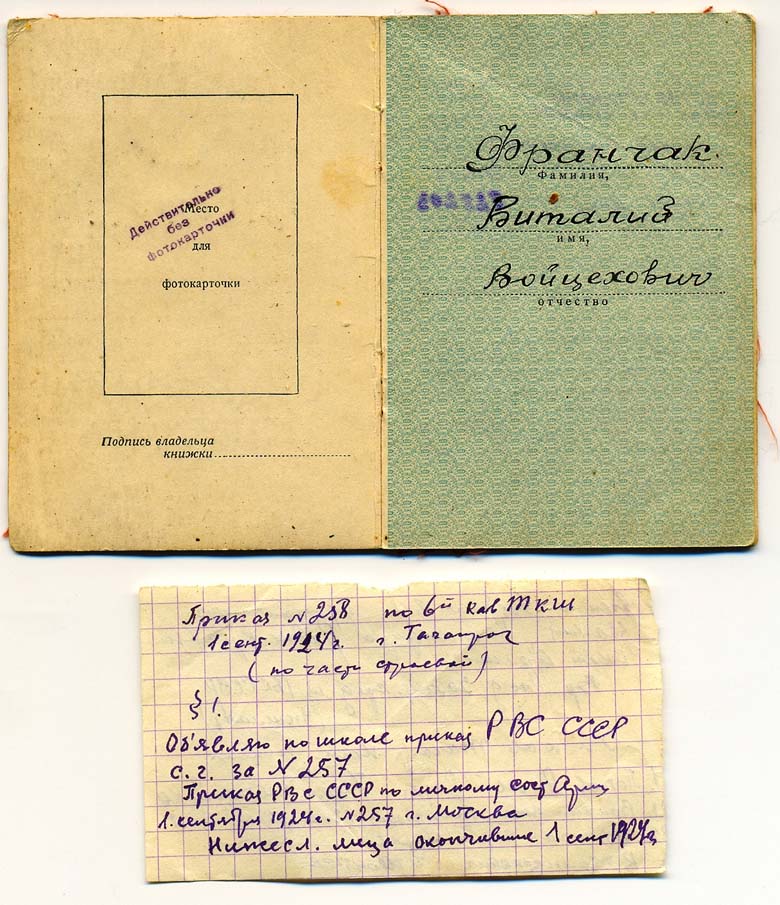 Место
для
фотокарточки
Действительно
без
фотокарточки
Подпись владельца
книжки
Франчак
Фамилия,
Виталий
имя,
Войцехович
отчество
Приказ №258 по 6й Кав ТКШ
1 сент. 1924г. г. Таганрог
(по части строевой)
§ 1.
Об'являю по школе приказ РВС СССР
с.г. за №257
Приказ РВС СССР по личному сост Армии
1. сентября 1924г. №257 г. Москва
Нижесл. лица окончившие 1 сент 1924г